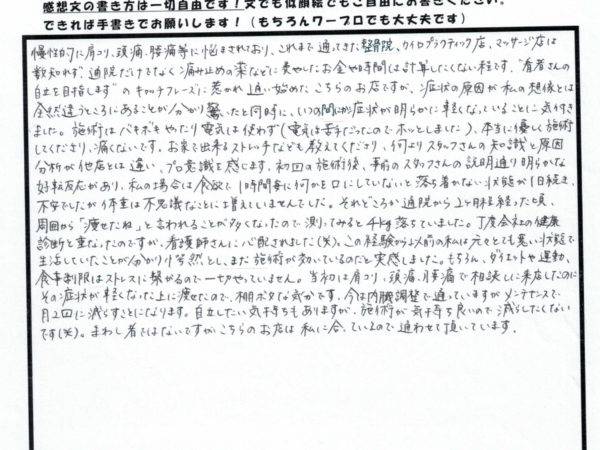 感想文の書き方は一切自由です！文でも似顔絵でもご自由にお書きください。
できれば手書きでお願いします！（もちろんワープロでも大丈夫です）
慢性的に肩コリ、頭痛、膝痛等に悩まされており、これまで通ってきた整骨院、カイロプラクティック店、マッサージ店は
数知れず、通院だけでなく痛み止めの薬などに費やしたお金や時間は計算したくない程です。"患者さんの
自立を目指します"のキャッチフレーズに惹かれ通い始めたこちらのお店ですが、症状の原因が私の想像とは
全然違うところにあることが分かり驚いたと同時に、いつの間にか症状が明らかに軽くなっていることに気付き
ました。施術はバキボキやったり電気は使わず（電気は苦手だったのでホッとしました）、本当に優しく施術
してくださり、痛くないです。お家で出来るストレッチなども教えてくださり、何よりスタッフさんの知識と原因
分析が他店とは違い、プロ意識を感じます。初回の施術後、事前のスタッフさんの説明通り明らかな
好転反応があり、私の場合は食欲で1時間毎に何かを口にしていないと落ち着かない状態が1日続き、
不安でしたが体重は不思議なことに増えていませんでした。それどころか通院から2ヶ月半経った頃、
周囲から「痩せたね」と言われることが多くなったので測ってみると4kg落ちていました。丁度会社の健康
診断と重なったのですが、看護師さんに心配されました(笑)。この経験から以前の私は元々とても悪い状態で
生活していたことが分かり愕然とし、また施術が効いているのだと実感しました。もちろん、ダイエットや運動、
食事制限はストレスに繋がるので一切やっていません。当初は肩コリ、頭痛、膝痛で相談しに来店したのに
その症状が軽くなった上に痩せたので、棚ボタな気分です。今は内臓調整で通っていますがメンテナンスで
月2回に減らすことになります。自立したい気持ちもありますが、施術が気持ち良いので減らしたくない
です(笑)。まわし者ではないですがこちらのお店は私に合っているので通わせて頂いています。